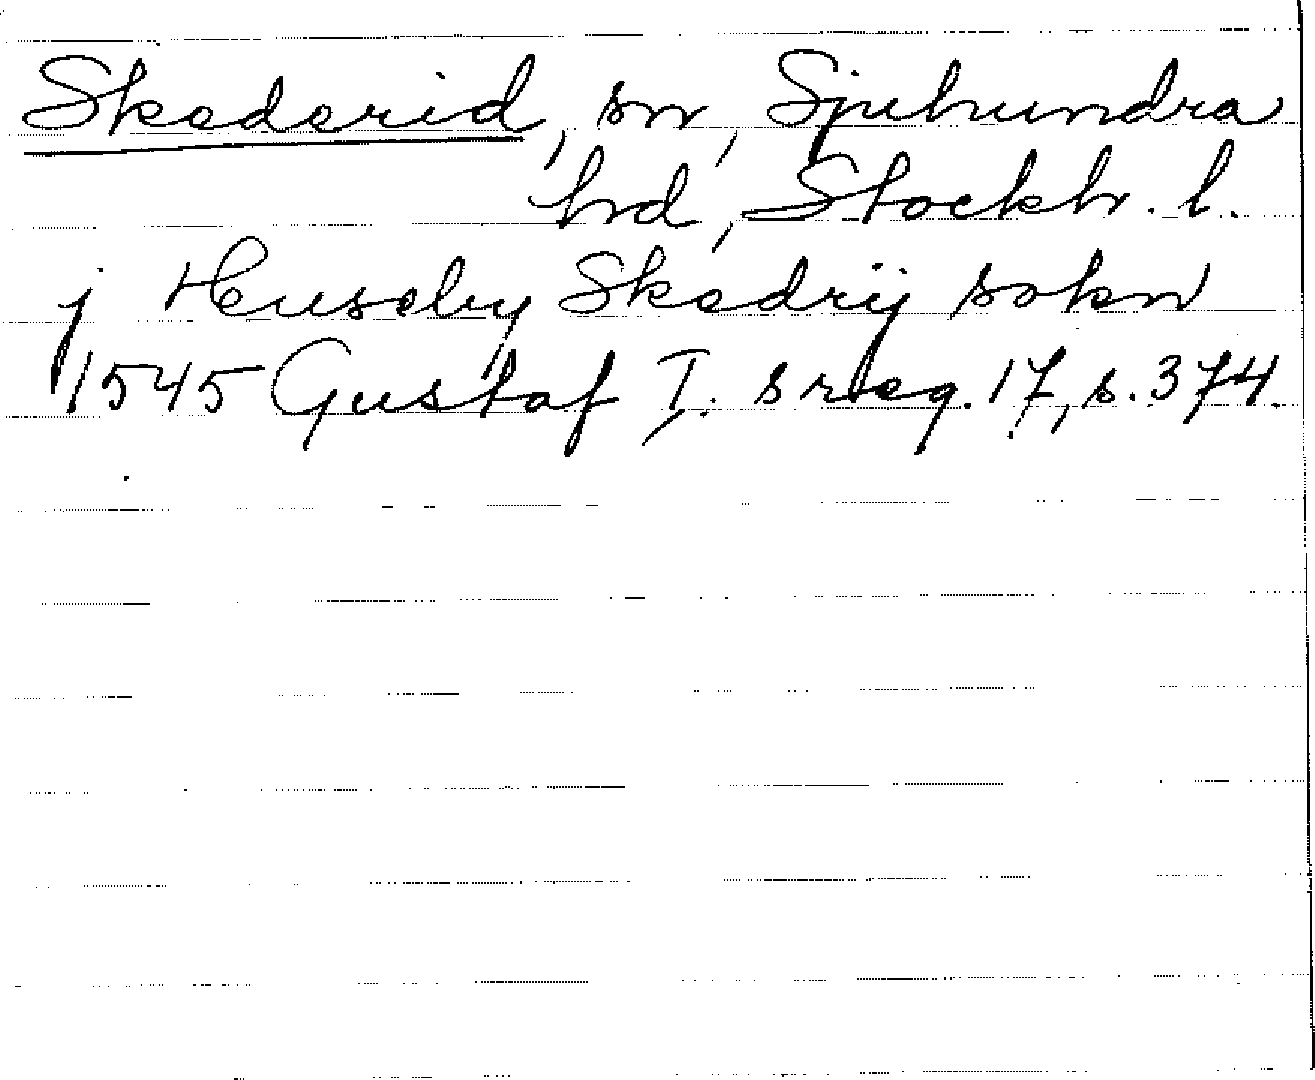 Skederid, sn, Sjuhundra
hd, Stockh. l.
j Heuseby Skedrij sokn
1545 Gustaf I. s reg. 17, s. 374.